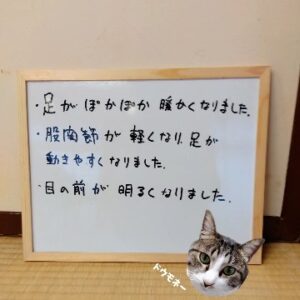 ・足がぽかぽか 暖かくなりました.
・股関節が 軽くなり、足が
動きやすくなりました.
・目の前が 明るくなりました.
トウモネー